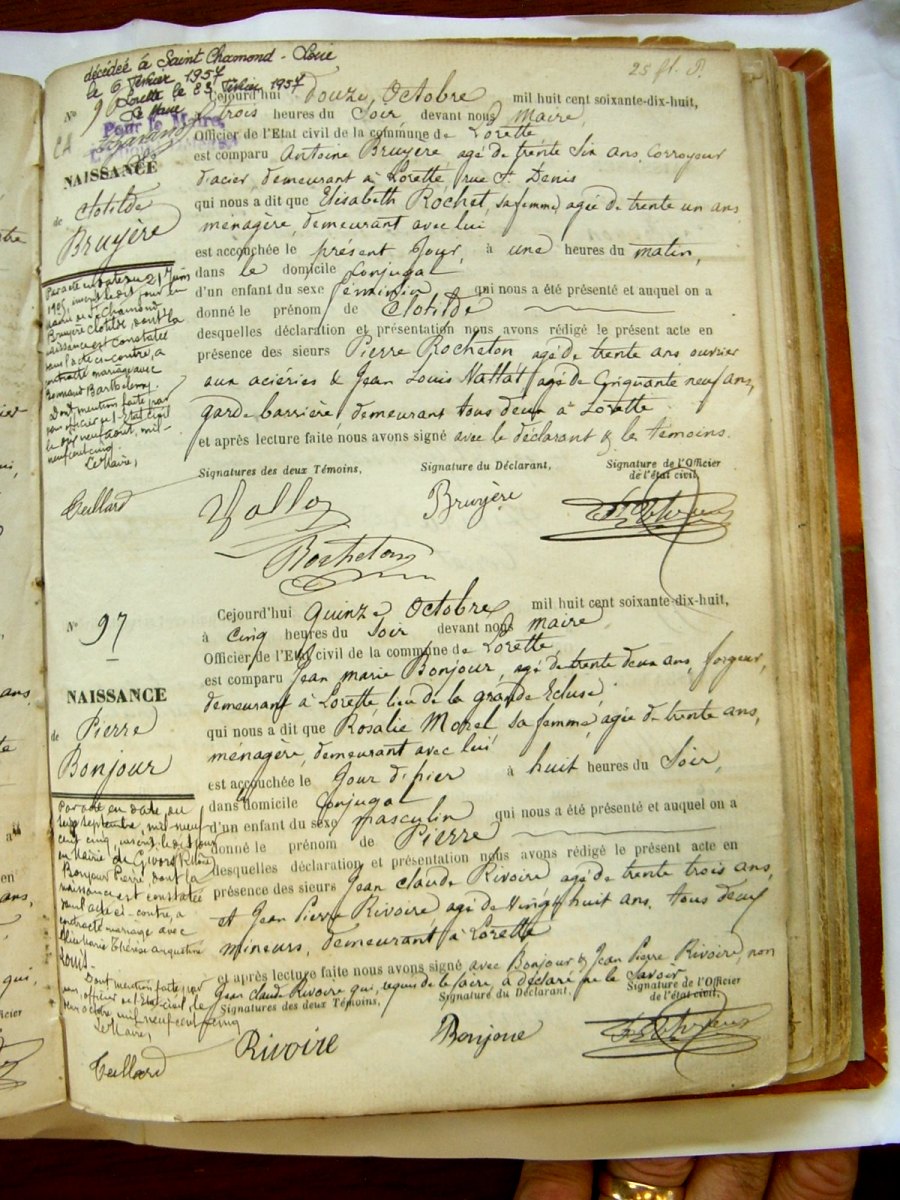 décédée à Saint Chamond - Loire
le 6 Février 1957
Lorette le 25 Février 1957
Le Maire
Pour le Maire
25 f. P.
N° 96
NAISSANCE
de Clotilde
Bruyère
Cejourd'hui douze Octobre mil huit cent soixante-dix-huit,
à trois heures du Soir, devant nous Maire,
Officier de l'Etat civil de la commune de Lorette
est comparu Antoine Bruyère agé de trente Six ans, Corroyeur
d'acier, demeurant à Lorette rue St. Denis
qui nous a dit que Elisabeth Rochet, sa femme, agée de trente un ans
ménagère, demeurant avec lui
est accouchée le présent Jour, à une heures du matin,
dans le domicile Conjugal
d'un enfant du sexe féminin qui nous a été présenté et auquel on a
donné le prénom de Clotilde
desquelles déclaration et présentation nous avons rédigé le présent acte en
présence des sieurs Pierre Rocheton agé de trente ans ouvrier
aux aciéries & Jean Louis agé de Cinquante neuf ans,
garde-barrière, demeurant tous deux à Lorette
et après lecture faite nous avons signé avec le déclarant & les témoins.
Par acte en date du 21 Juin
1905, inscrit le dit jour en
mairie de St Chamond,
Bruyère Clotilde, dont la
naissance est constatée
dans l'acte ci-contre, a
contracté mariage avec
Barthélemy.
Dont mention faite par
nous officier de l'Etat civil
le neuf août, mil-
neuf cent cinq
Le Maire,
Teillard
Signatures des deux Témoins,
Signature du Déclarant,
Signature de l'Officier
de l'état civil,
Bruyère
Rocheton
N° 97
NAISSANCE
de Pierre
Bonjour
Cejourd'hui quinze Octobre mil huit cent soixante-dix-huit,
à Cinq heures du Soir devant nous maire
Officier de l'Etat civil de la commune de Lorette
est comparu Jean Marie Bonjour, agé de trente deux ans, forgeur,
demeurant à Lorette lieu de la grande Ecluse
qui nous a dit que Rosalie Morel sa femme, agée de trente ans,
ménagère, demeurant avec lui
est accouchée le Jour d'hier à huit heures du Soir,
dans domicile Conjugal
d'un enfant du sexe masculin qui nous a été présenté et auquel on a
donné le prénom de Pierre
desquelles déclaration et présentation nous avons rédigé le présent acte en
présence des sieurs Jean Claude Rivoire agé de trente trois ans,
et Jean Pierre Rivoire agé de Vingt huit ans, tous deux
mineurs, demeurant à Lorette
et après lecture faite nous avons signé avec Bonjour & Jean Pierre Rivoire, non
Jean Claude Rivoire qui, requis de le faire, a déclaré ne le Savoir
Par acte en date, du
septembre, mil neuf
cent cinq, inscrit le dit jour
en Mairie de Givors, Rhône
Bonjour Pierre, dont la
naissance est constatée
dans l'acte ci-contre, a
contracté mariage avec
Marie Thérèse
Louis.
Dont mention faite, par
nous, officier de l'état civil, le
octobre, mil neuf cent cinq
Le Maire,
Teillard
Signatures des deux Témoins,
Signature du Déclarant,
Signature de l'Officier
de l'état civil,
Rivoire
Bonjour